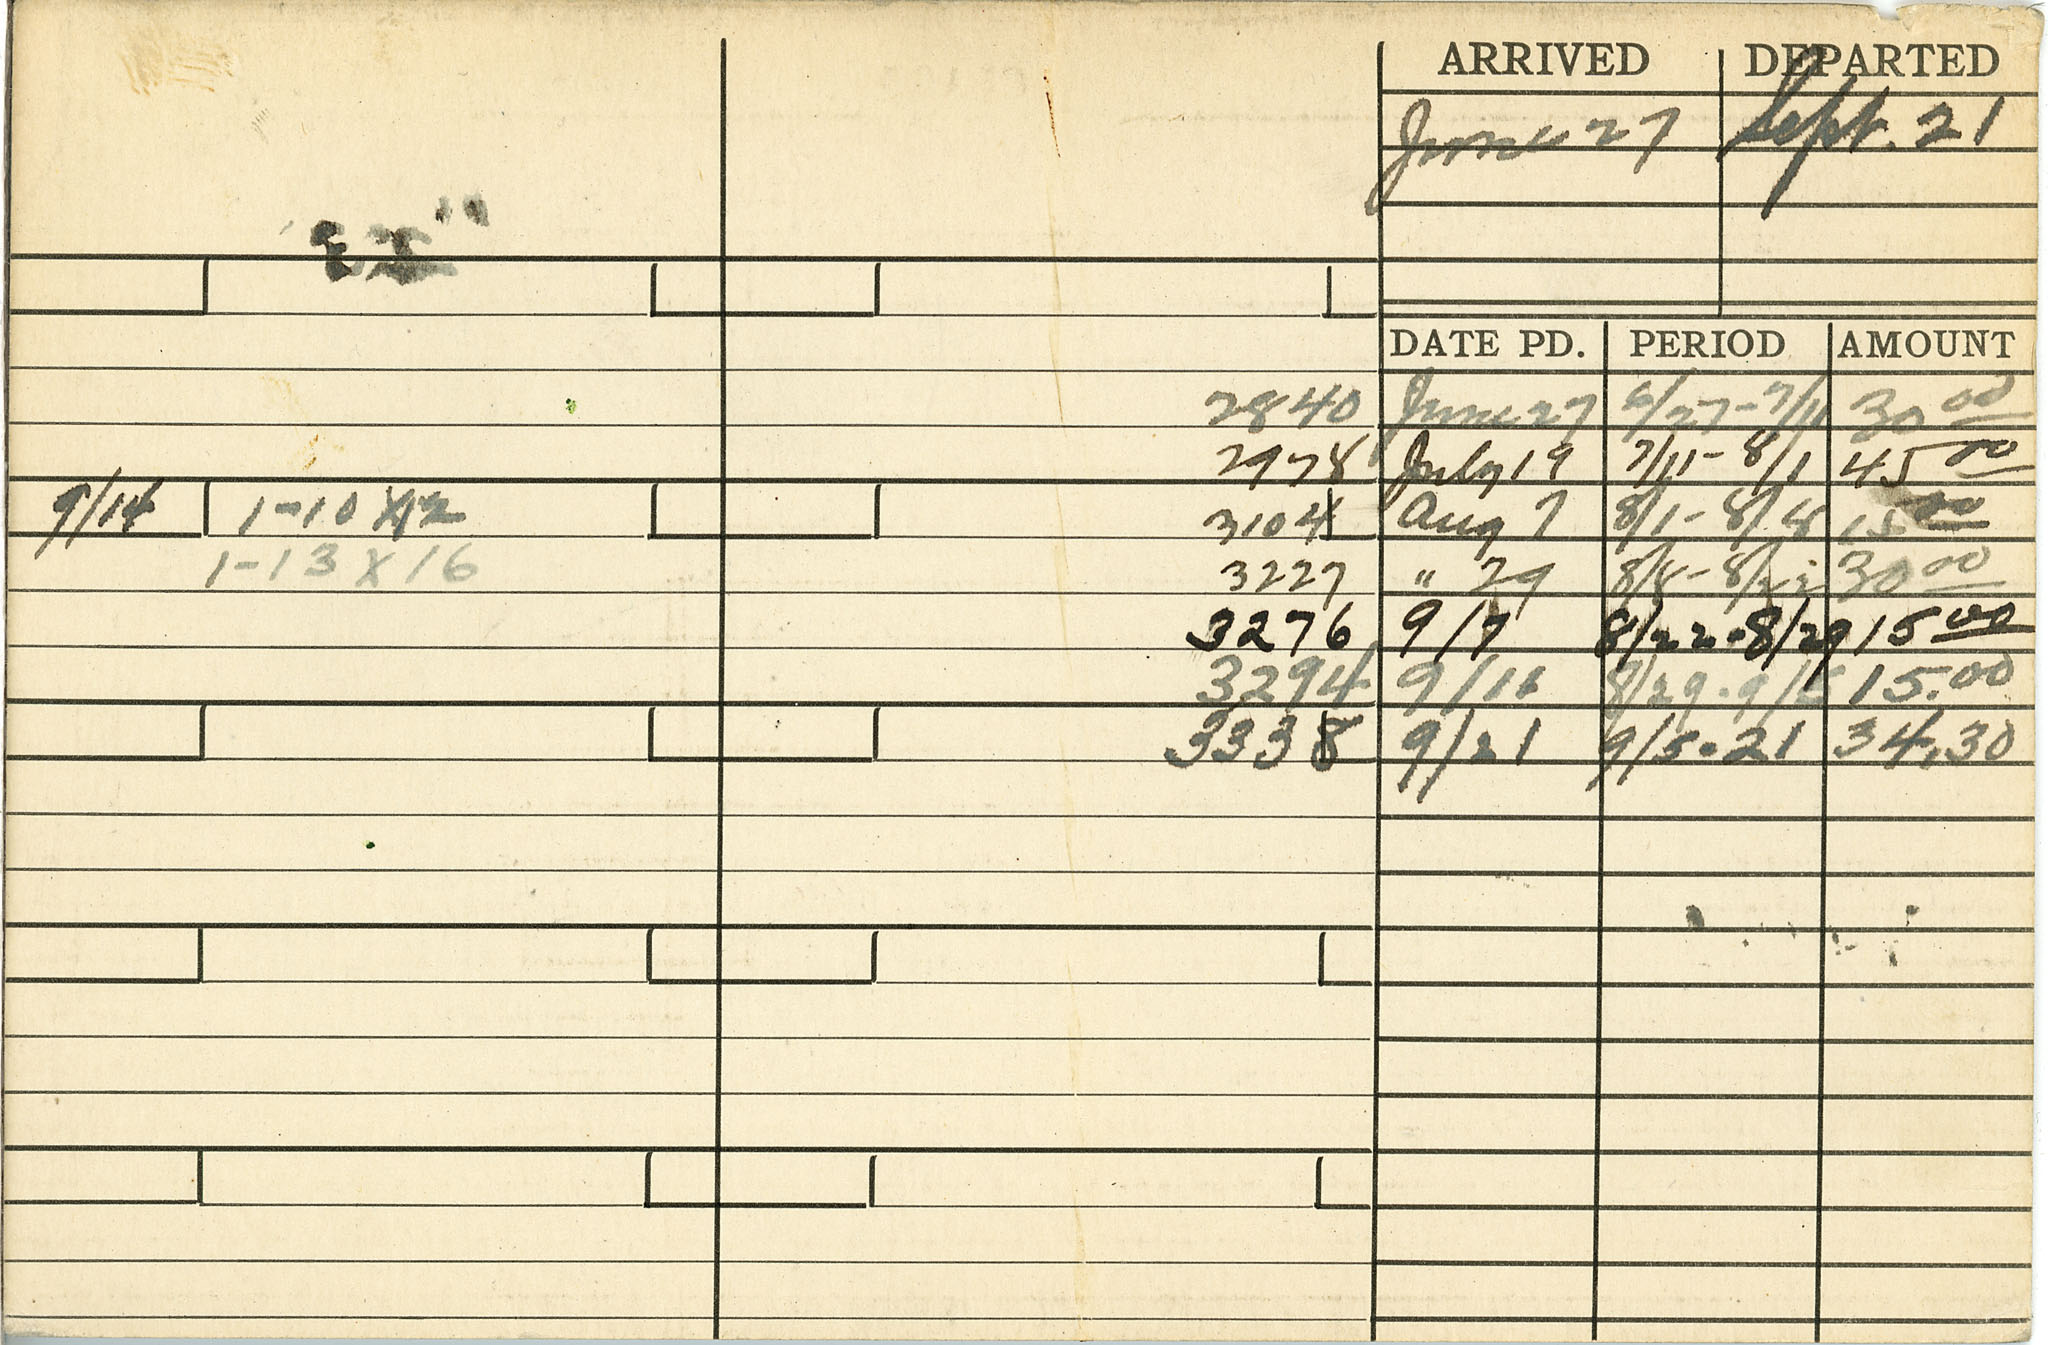 ARRIVED DEPARTED
June 27 Sept. 21
DATE PD. PERIOD AMOUNT
2840 June 27 6/27-7/11 30 00
2978 July 19 7/11-8/1 45 00
9/14 1-10 X 12 3104 Aug 7 8/1-8/8 15 00
1-13 X 16 3227 " 29 8/8-8/22 30 00
3276 9/7 8/22-8/29 15 00
3294 9/11 8/29-9/5 15.00
3338 9/21 9/5-21 34.30